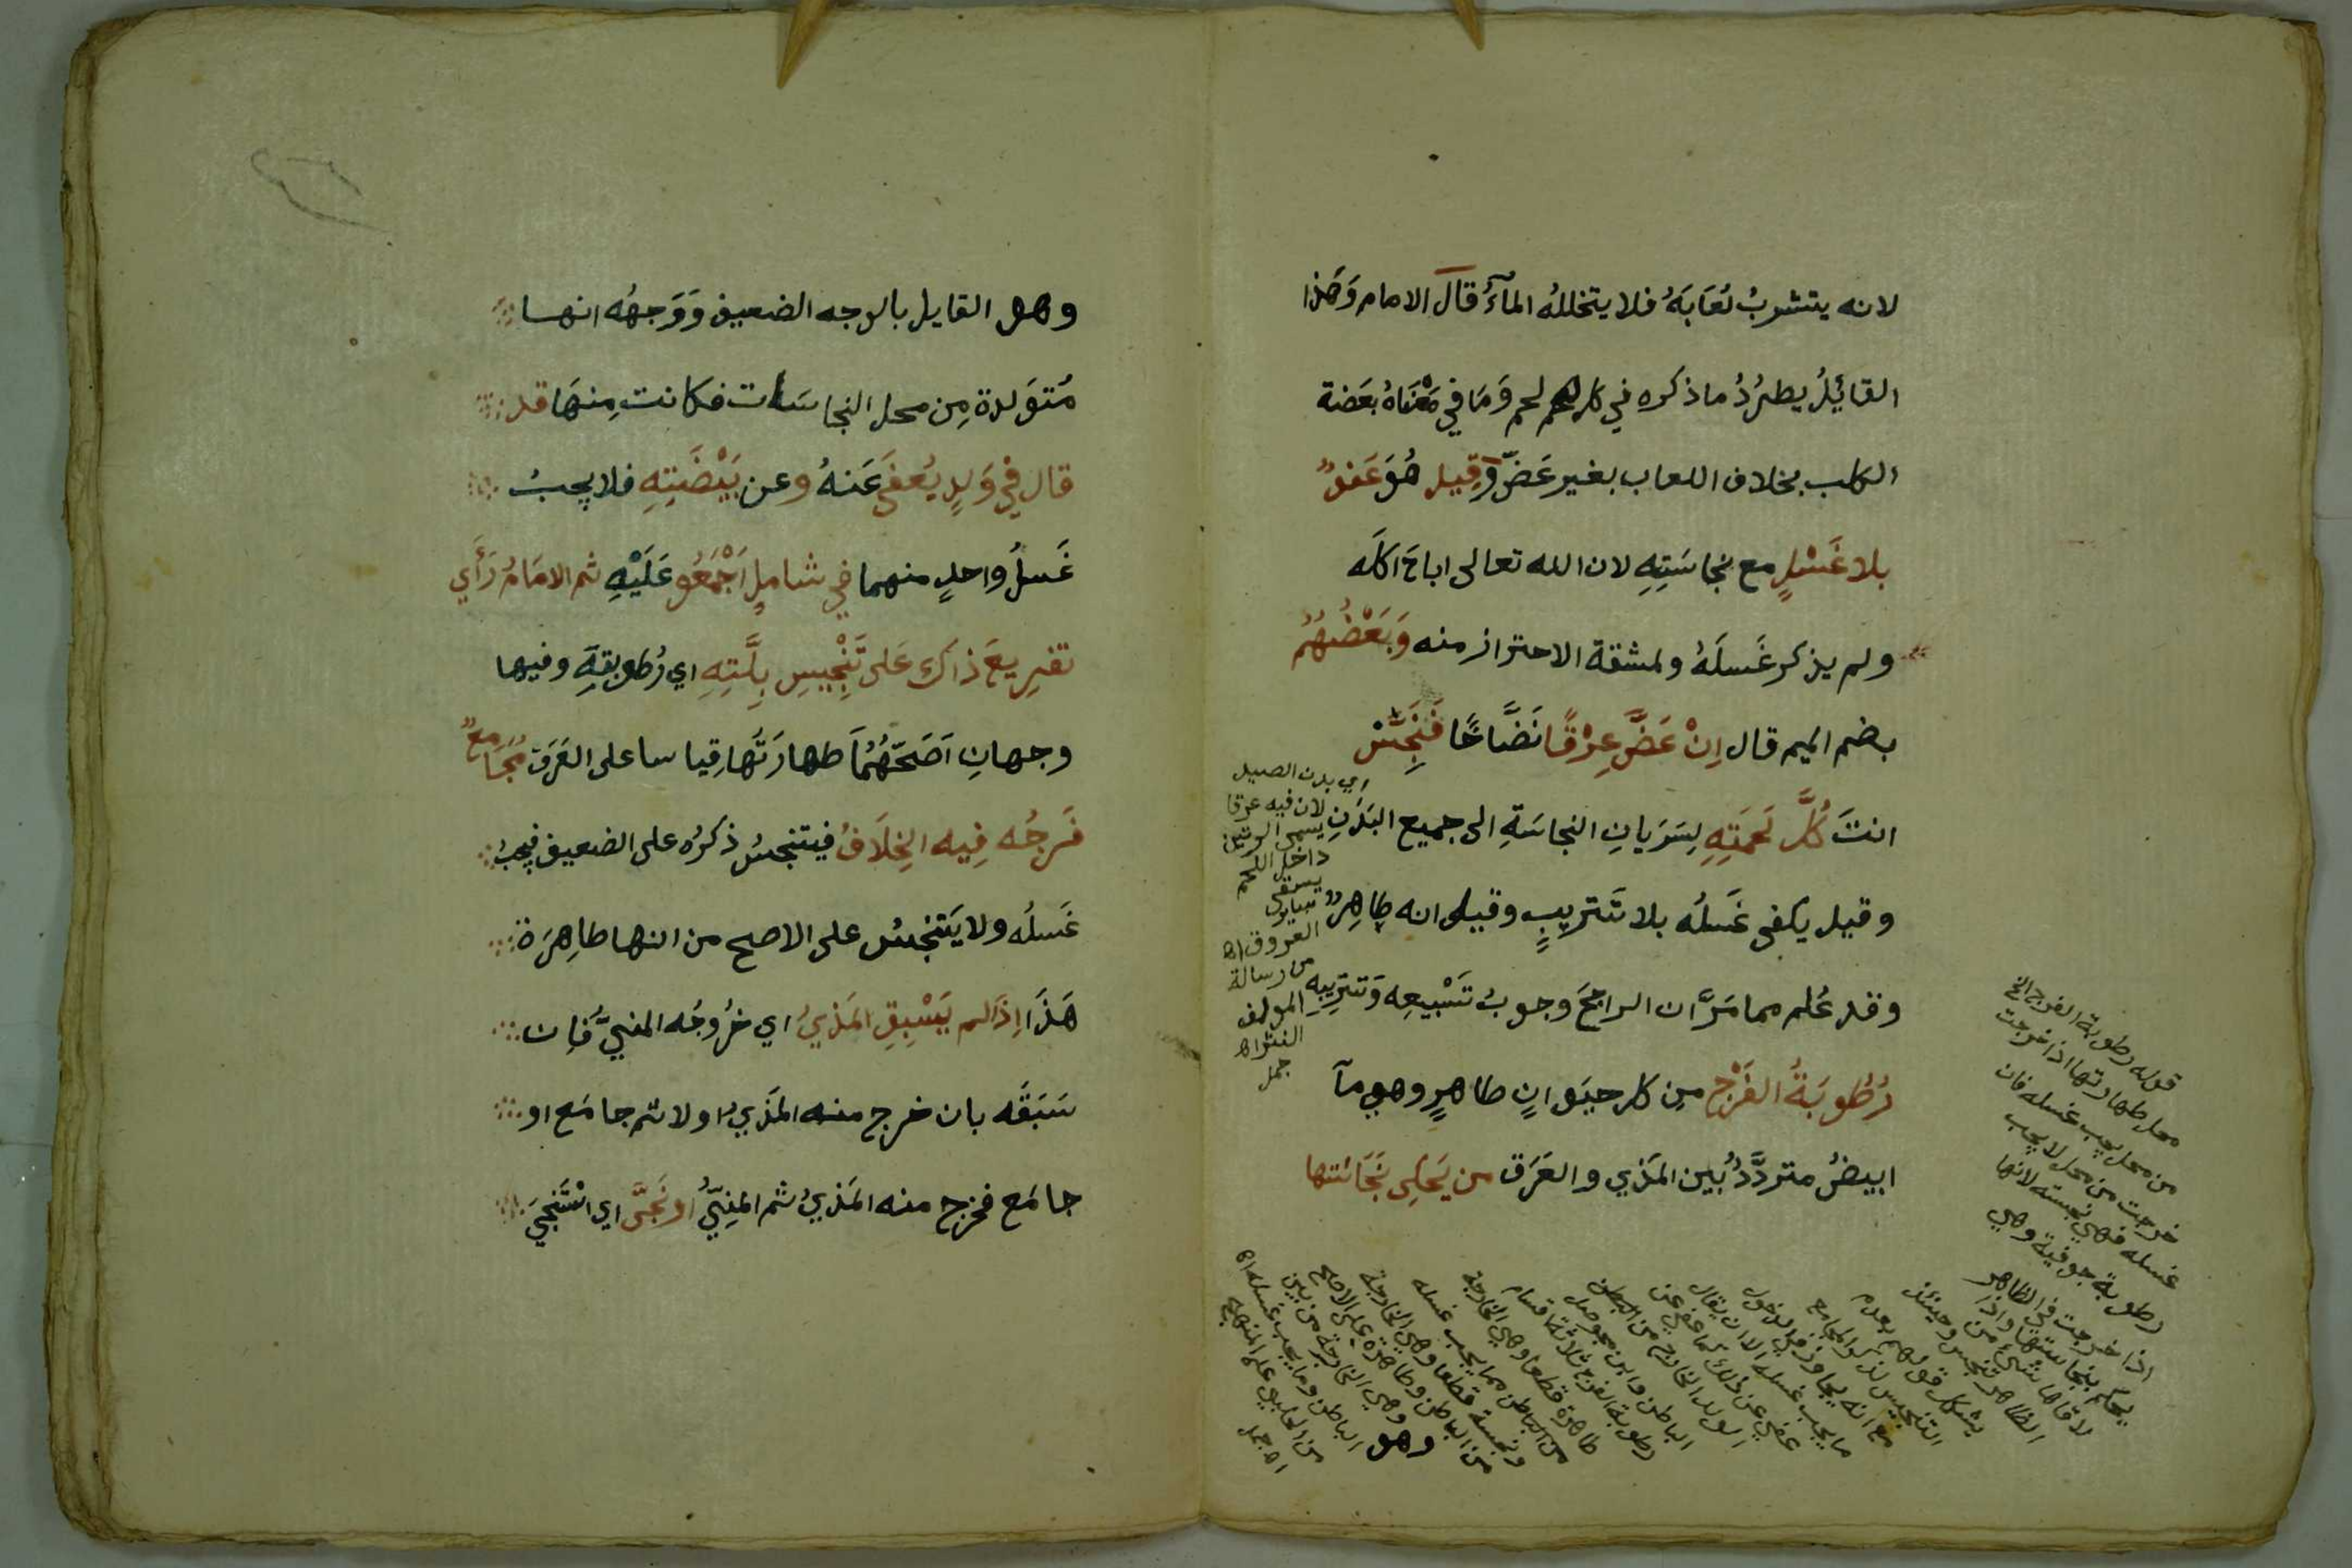 لانه يتشربُ لُعَابَهُ فلا يتخللهُ المآءُ قَالَ الامام وَهَذا
القائِلُ يطرُدُ ما ذكره في كل لحم وَمَا في مَعْنَاهُ بعَضة
الكلب بخلاف اللعاب بغير عَضّ وَقِيل هُوَ عَفوٌ
بلا غَسْلٍ مع نجاسَتِهِ لان الله تعالى اباحَ اكلَه
ولم يذكر غَسلَهُ ولمشقة الاحتراز منه وَبَعْضُهُمُ
بضم الميم قال اِنْ عَضَّ عِرْقًا نَضَّاخًا فَنَجِّسْ
انتَ كُلَّ لَحمَتِهِ لِسَرَيانِ النجاسَةِ الى جميع البَدَنِ
وقيل يكفى غَسلُه بلا تَتريبٍ وقيل انه طاهِرٌ
وقد عُلم مما مَرَّ ان الراجحَ وجوبُ تَسْبيعِه وَتتريبِهِ
رُطُوبَةُ الفَرْجِ مِن كل حيَوانٍ طاهرٍ وهي مآ
ابيضُ متردَّدٌ بُين المَذي والعَرَق من يَحكى نَجَاستها
اي بدن الصيد
لان فيه عرقا
يسمى الوتين
داخل اللحم
يسقى
سايى
العروق اه
من رسالة
المولف
النثر اه
جمل
قوله رطوبة الفرج الخ
محل طهارتها اذا خرجت
من محل يجب غسله فان
خرجت من محل لا يجب
غسله فهي نجسة لانها
رطوبة جوفية وهي
اذا خرجت في الظاهر
يحكم بنجاستها واذا
لاقاها شئ من
الظاهر تنجس وحينئذ
يشكل قولهم بعدم
التنجيس لذكر المجامع
مع انه يجاوز في الدخول
ما يجب غسله الا ان يقال
عفي عن ذلك كما عفي عن
الولد الخارج من البطن
رطوبة الفرج ثلاثة اقسام
طاهرة قطعا وهي الخارجة
مما يجب غسله
ونجسة قطعا وهي الخارجة
من الباطن وطاهرة على الاصح
وهي الخارجة من بين
الباطن وما يجب غسله اه
من الحلبي على المنهج
اه جمل
وهو
وهو القايل بالوجه الضعيف وَوَجهُه انها
مُتوَلدة مِن محل النجاسَات فكانت مِنهَا قد
قال في وَلدٍ يُعفَى عَنهُ وعن بَيْضَتِهِ فلا يجبُ
غَسلُ واحدٍ منهما في شاملٍ اَجْمَعُو عَلَيْهِ ثم الامَامُ رَأَي
تفرِيعَ ذاكَ عَلى تَنْجِيسِ بِلَّتِهِ اي رُطوبتهِ وفيها
وجهانِ اَصَحّهُمُا طهارَتُها قِياسا على العَرَق مُجَامعٌ
فَرجُه فِيه الخِلَافُ فيتنجسُ ذكرُه على الضعيف فيجبُ
غَسلُه ولا يَتنجسُ على الاصح من انها طاهِرَة
هَذَا اِذَا لم يَسْبِقِ المَذيُ اي خرُوجُه المنيَّ فاِن
سَبَقَه بان خرج منه المَذيُ اولا ثم جامَع او
جامَع فخرج منه المَذيُ ثم المنِيّ اُو نَجَّى اي اسْتَنجَىَ